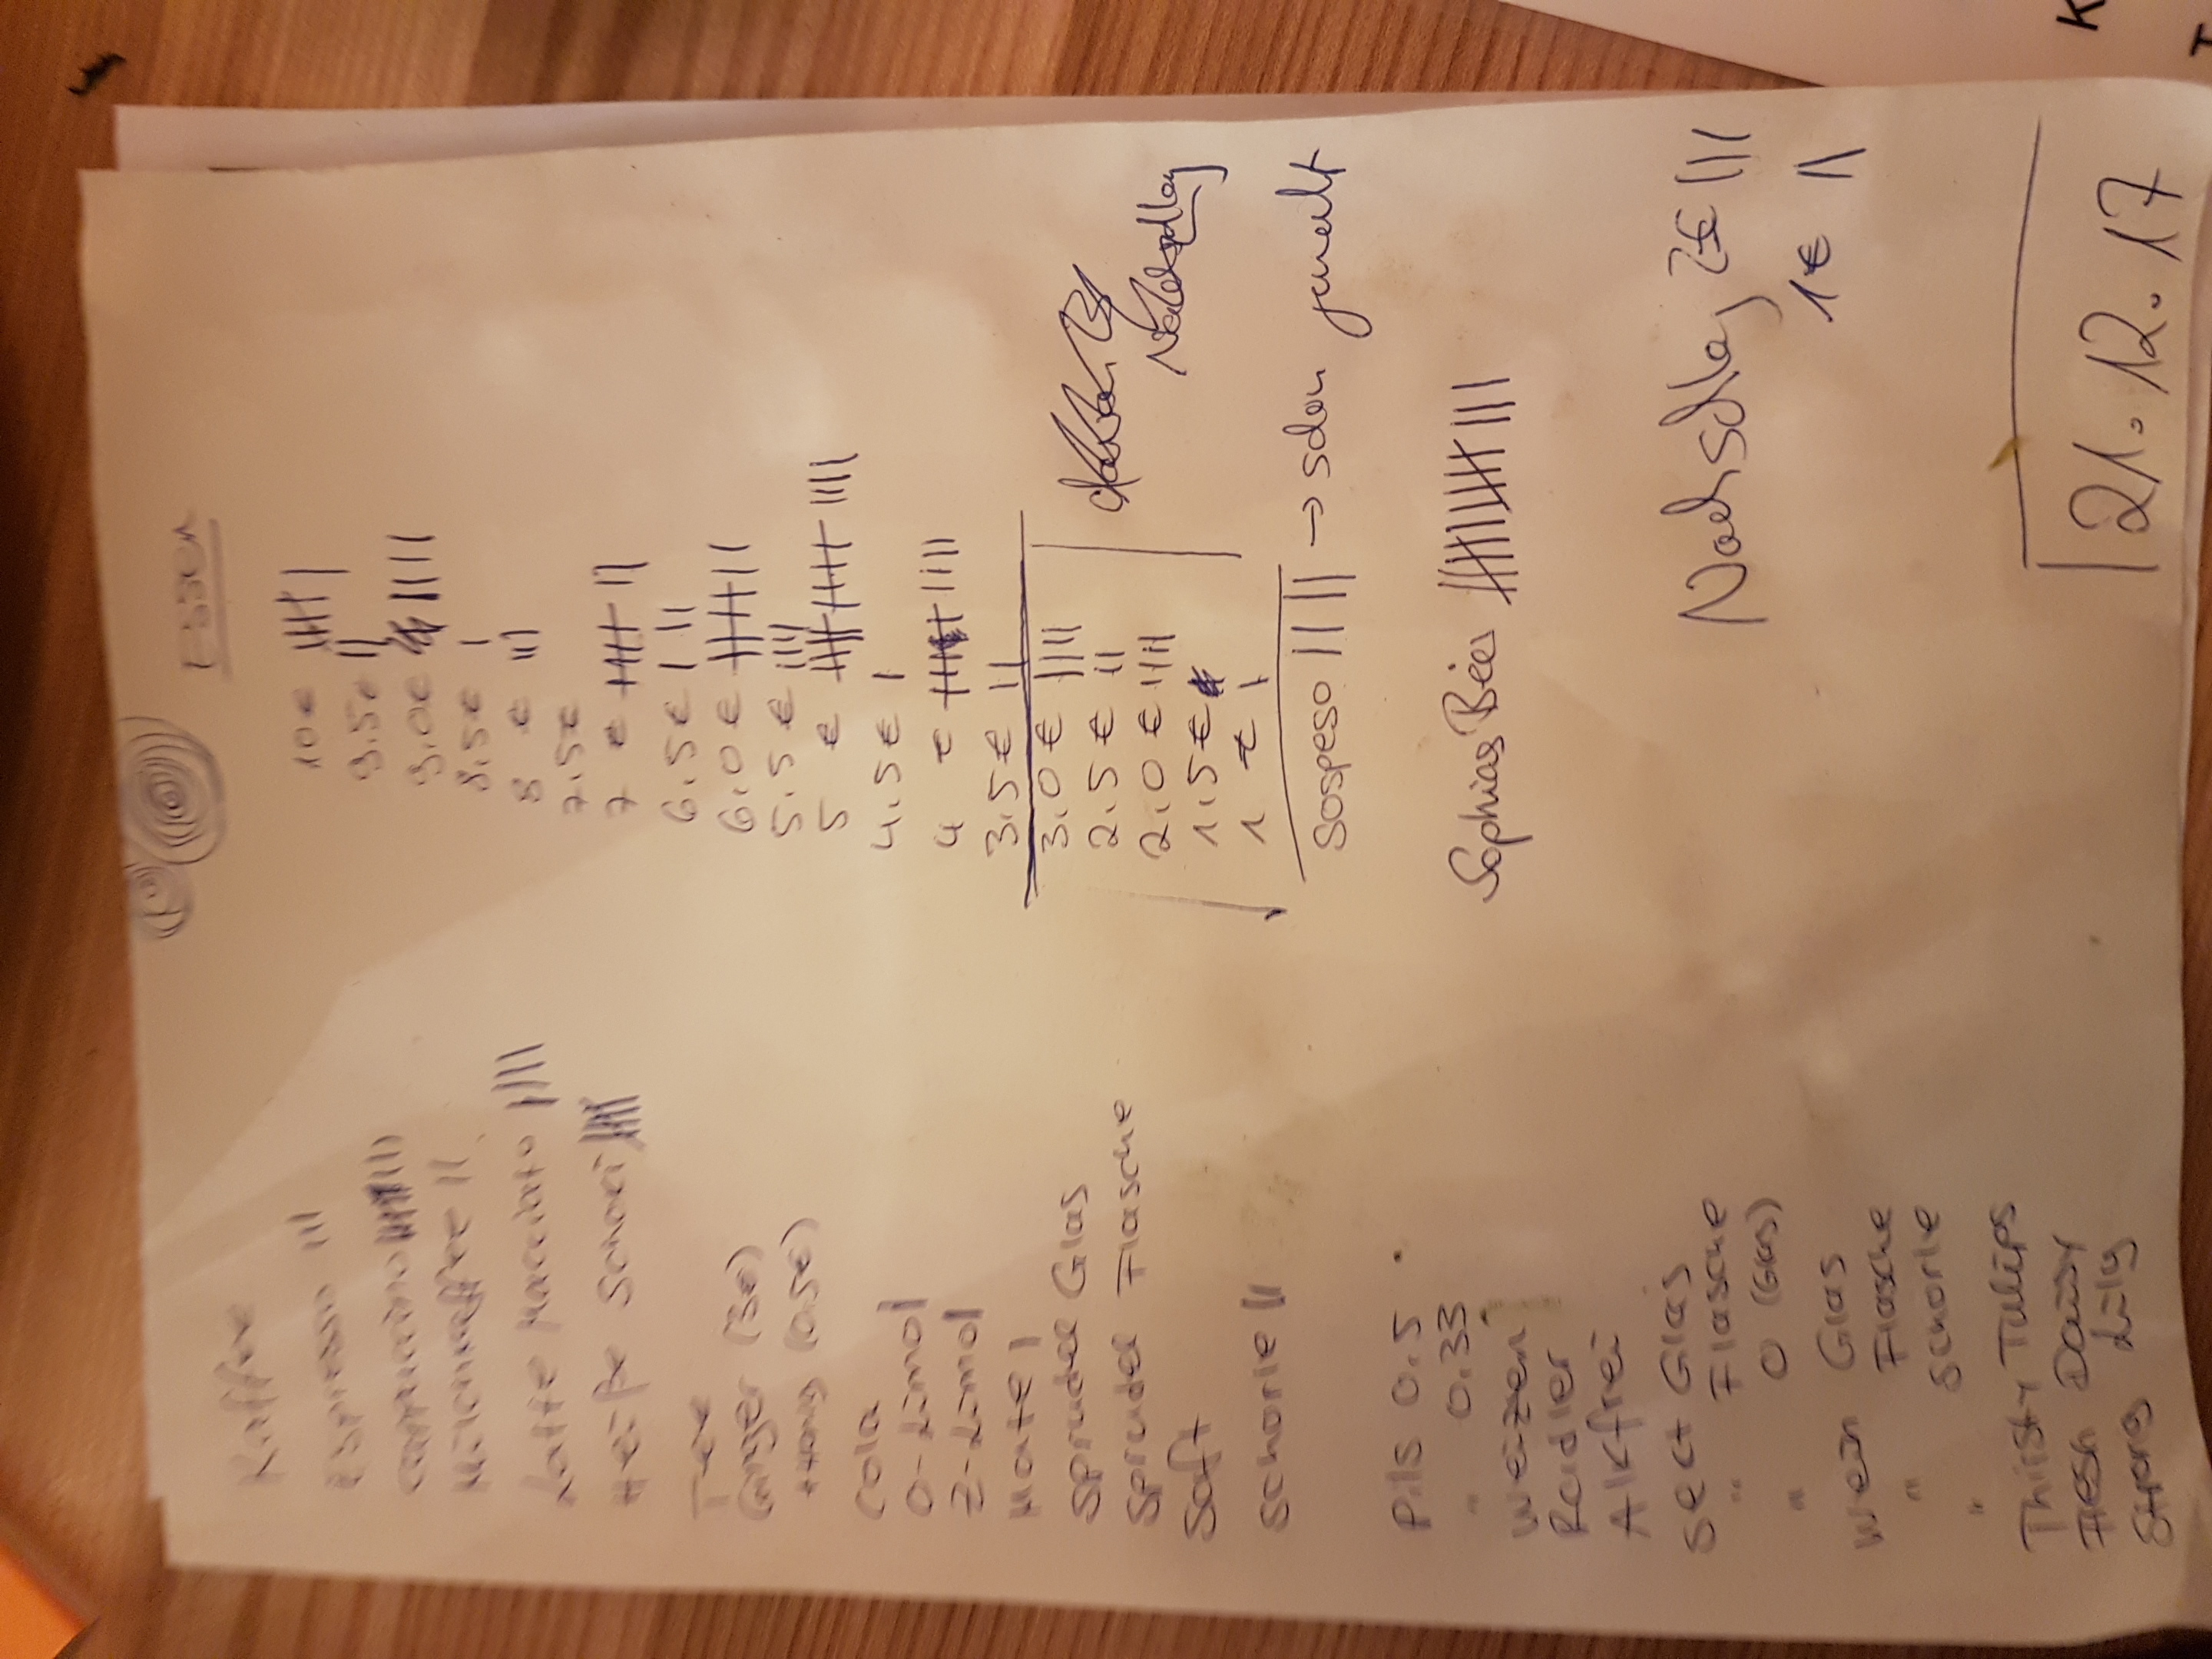 Kaffee
Espresso |||
Cappuccino
Milchkaffee ||
Latte Macciato ||||
Heiße Schoki
Tee
Ginger (3€)
+Honig (0.5€)
Cola
O-Limo |
Z-Limo |
Mate |
Sprudel Glas
Sprudel Flasche
Saft
Schorle ||
Pils 0.5
" 0.33
Weizen
Radler
Alkfrei
Sect Glas
" Flasche
" O (Glas)
Wein Glas
" Flasche
" Schorle
Thirsty Tulips
Fresh Daisy
Strong Lily
Essen
10€ ||||| |
9.5€ ||
9.0€ ||||
8.5€ |
8 € |||
7.5€
7 € ||||| ||
6.5€ | ||
6.0€ ||||| ||
5.5€ ||||
5 € ||||| ||||| ||||
4.5€ |
4 € ||||| ||||
3.5€ ||
3.0€ ||||
2.5€ ||
2.0€ ||||
1.5€
1 € |
Nachschlag
Sospeso |||| → schon gemalt
Sophias Bier ||||| ||||| |||
Nachschlag 2€ |||
1€ ||
21.12.17